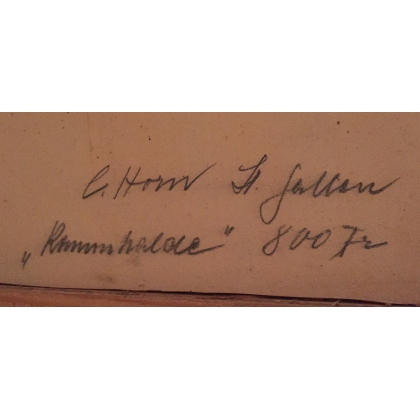 C. Horn St. Gallen
„ " 800 Fr